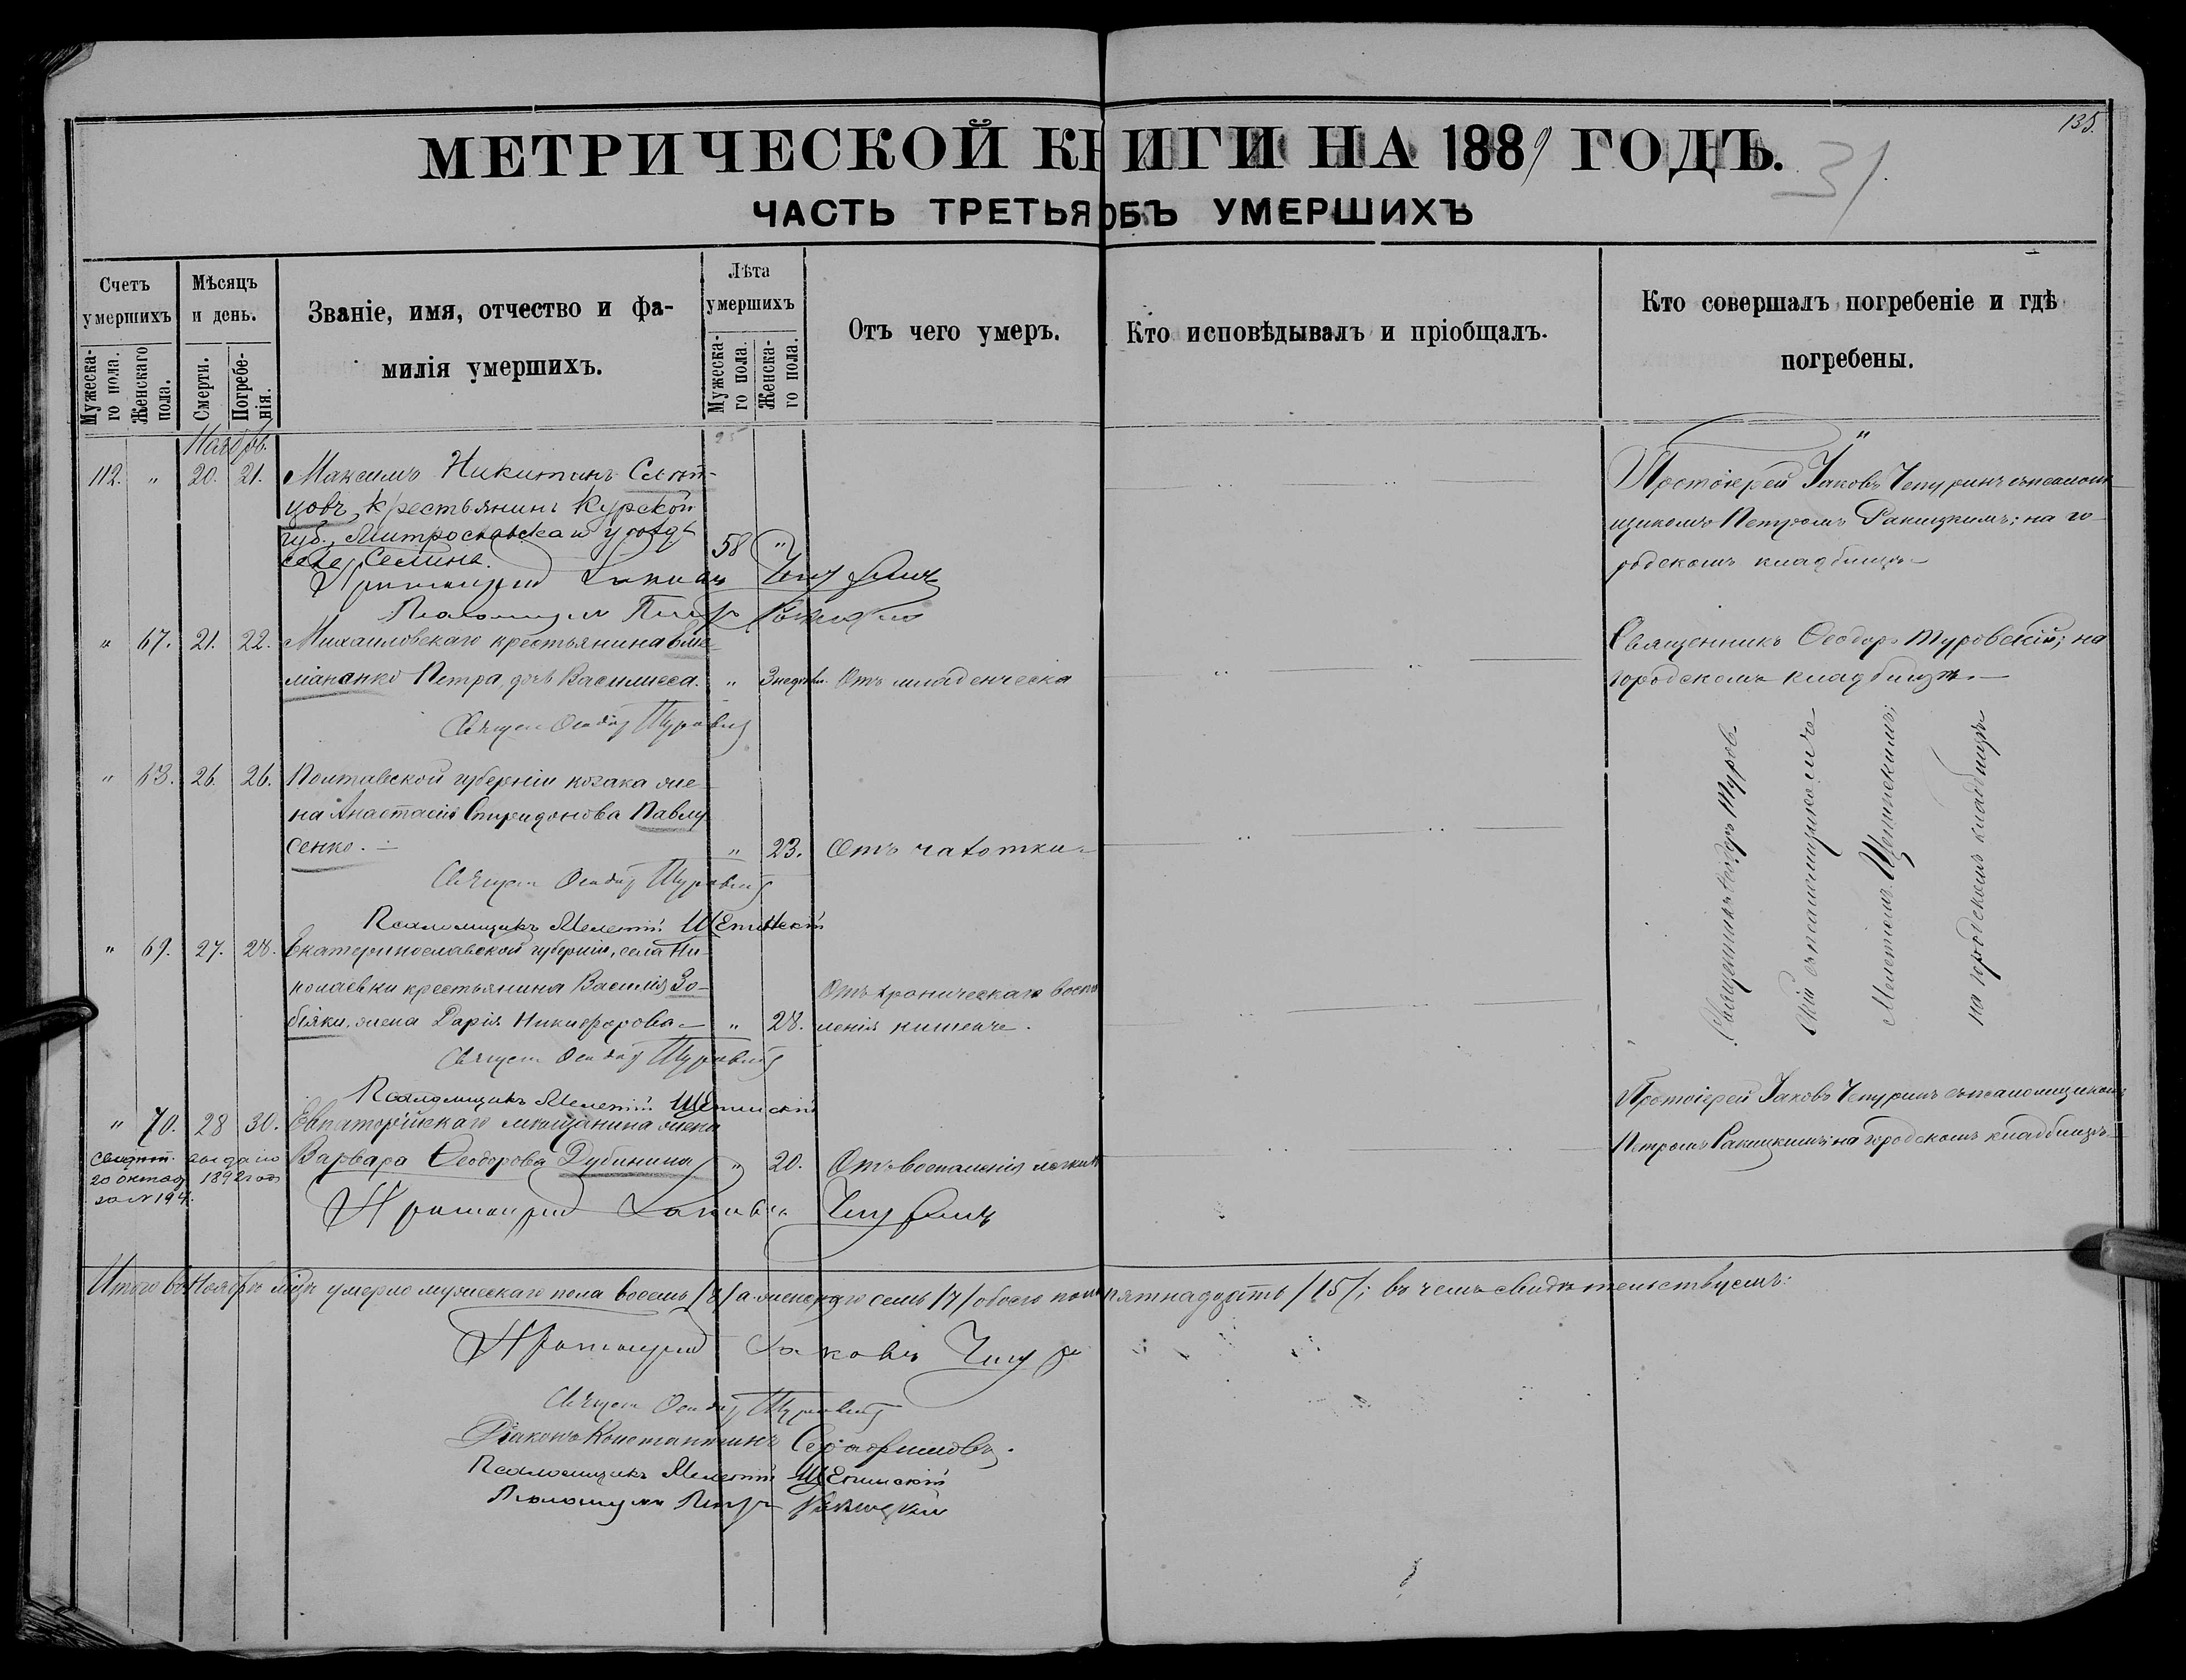 135.
МЕТРИЧЕСКОЙ КНИГИ НА 1889 ГОДЪ.
31.
ЧАСТЬ ТРЕТЬЯ ОБЪ УМЕРШИХЪ
Счетъ умершихъ
Мужескаго пола.
Женскаго пола.
Мѣсяцъ и день.
Смерти.
Погребенія.
Званіе, имя, отчество и фамилія умершихъ.
Лѣта умершихъ
Мужескаго пола.
Женскаго пола.
Отъ чего умеръ.
Кто исповѣдывалъ и пріобщалъ.
Кто совершалъ погребеніе и гдѣ погребены.
Ноябрь.
112. " 20. 21. Максимъ Никитинъ
цовъ, крестьянинъ Курской
губ., уѣзда
села Селина. 58 "
Протоіерей Іаковъ Чепуринъ съ псаломщикомъ Петромъ Ракицкимъ; на го-
родскомъ кладбищѣ
Протоіерей Іаковъ Чепуринъ
Псаломщикъ Петръ Ракицкій
" 67. 21. 22. Михаиловскаго крестьянина Еме-
ліаненко Петра, дочь Василисса. " 3 недѣли. Отъ младенческа
Священникъ Ѳеодоръ Туровскій; на
городскомъ кладбищѣ.
Священ Ѳеодоръ Туровскій
" 68. 26. 26. Полтавской губерніи козака же-
на Анастасія Спиридонова Павлу
сенко. " 23. Отъ чахотки.
Священ Ѳеодоръ Туровскій
Псаломщикъ Мелетій Щепинскій
" 69. 27. 28. Екатеринославской губерніи, села Ни-
колаевки крестьянина Василія Зо-
біяки, жена Дарія Никифорова " 28. Отъ хроническаго воспа
ленія кишекъ.
Священникъ Ѳеодоръ Туров
скій съ псаломщикомъ
Мелетіемъ Щепинскимъ;
на городскомъ кладбищѣ
Священ Ѳеодоръ Туровскій
Псаломщикъ Мелетій Щепинскій
" 70. 28 30. Евпаторійскаго мѣщанина жена
Варвара Ѳеодорова Дубинина " 20. Отъ воспаленія легкихъ
Протоіерей Іаковъ Чепуринъ съ псаломщикомъ
Петромъ Ракицкимъ; на городскомъ кладбищѣ
выдано
20 октяб 1892 года
за № 194.
Протоіерей Іаковъ Чепуринъ
Итого въ Ноябрѣ м-цѣ умерло мужескаго пола восемь /8/ а женскаго семь /7/ обоего пола пятнадцать /15/; въ чемъ свидѣтельствуемъ:
Протоіерей Іаковъ Чепур
Священ Ѳеодоръ Туровскій
Діаконъ Константинъ Серафимовъ.
Псаломщикъ Мелетій Щепинскій
Псаломщикъ Петръ Ракицкій